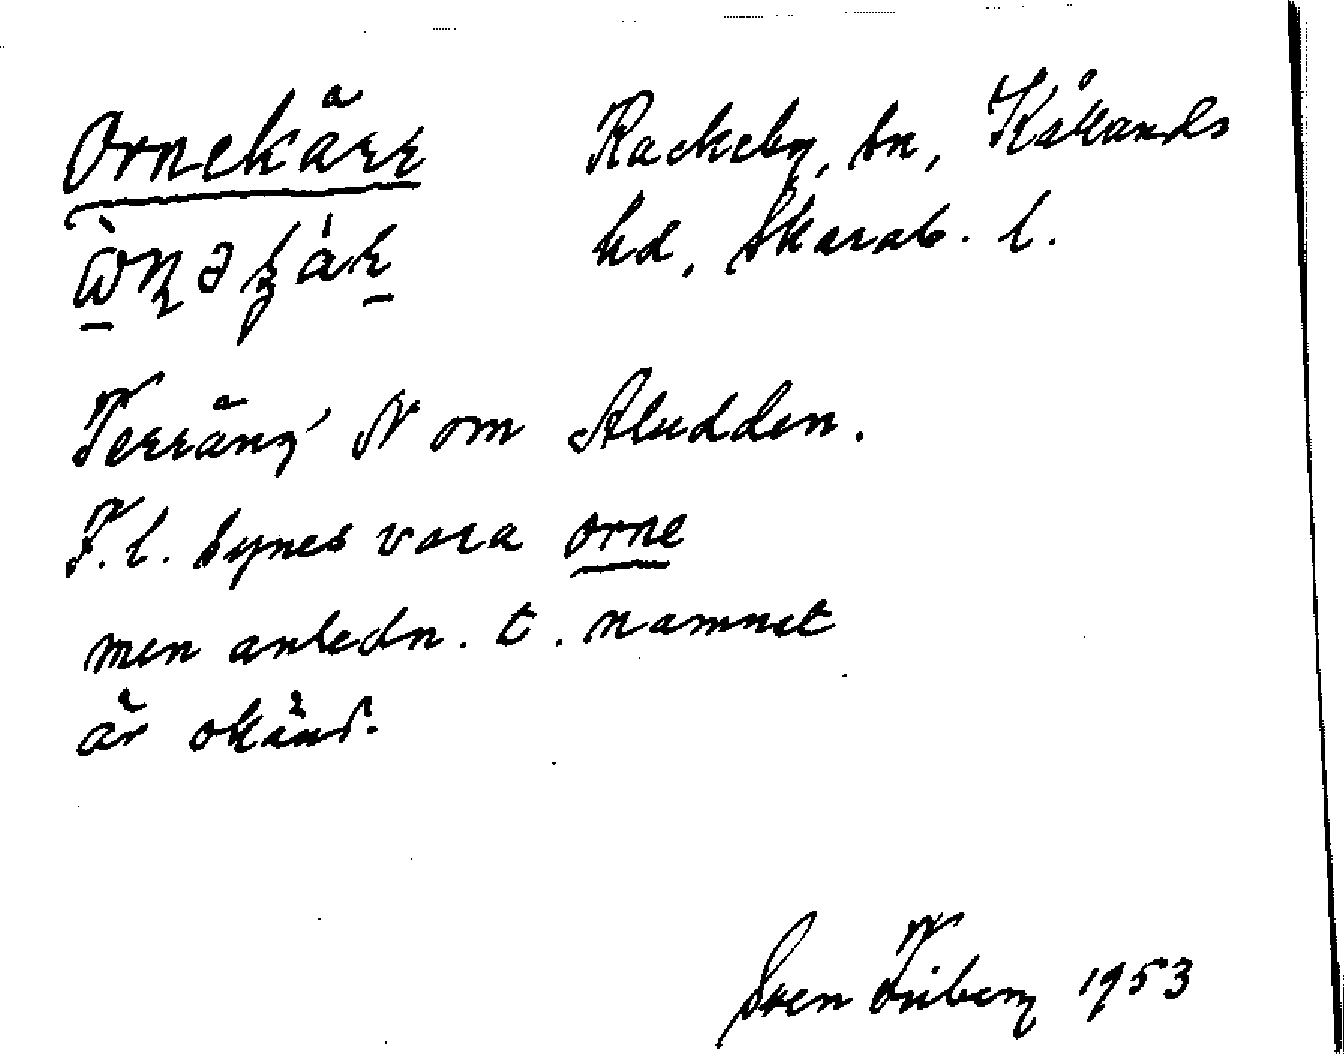 Ornekärr
Rackeby, sn, Kållands
hd, Skarab. l.
Terräng N om Aludden.
F.l. synes vara orne
men anledn. t. namnet
är okänd.
Sven Friberg 1953